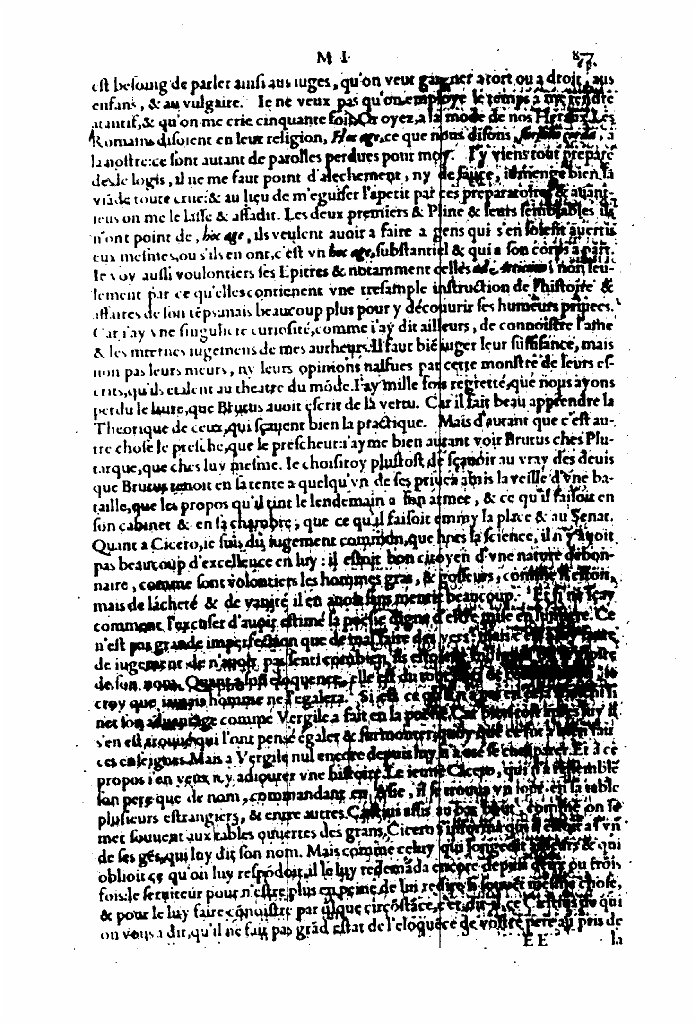 M I
87
est besoing de parler ainsi aus iuges, qu'on veut gaigner a tort ou a droit, aus
enfans, & au vulgaire. Ie ne veux pas qu'on employe le temps a me rendre
atantif, & qu'on me crie cinquante fois, Or oyez, a la mode de nos Heraux. Les
Romains disoient en leur religion, Hoc age, ce que nous disons, a
la nostre: ce sont autant de parolles perdues pour moy. I'y viens tout preparé
desle logis, il ne me faut point d'alechement, ny de sauce, ie menge bien la
viāde toute crue: & au lieu de m'eguiser l'apetit par ces preparatoires & avant-
ieus on me le lasse & affadit. Les deux premiers & Pline & leurs semblables ils
n'ont point de, hoc age, ils veulent avoir a faire a gens qui s'en soient avertis
eux mesmes, ou s'ils en ont, c'est vn hoc age, substantiel & qui a son corps a part.
Ie voy aussi voulontiers ses Epitres & notamment celles ad Atticum, non seu-
lement par ce qu'elles contienent vne tresample instruction de l'histoire &
affaires de son tēps: mais beaucoup plus pour y découurir ses humeurs priuees.
Car i'ay vne singuliere curiosité, comme i'ay dit ailleurs, de connoistre l'ame
& les iugemens de mes autheurs. Il faut biē iuger leur suffisance, mais
non pas leurs meurs, ny leurs opinions naifues par cette monstre de leurs es-
crits, qu'ils etalent au theatre du mōde. I'ay mille fois regretté, que nous ayons
perdu le liure, que Brutus auoit escrit de la vertu. Car il fait beau apprendre la
Theorique de ceux, qui sçauent bien la practique. Mais d'autant que c'est au-
tre chose le presche, que le prescheur: i'ayme bien autant voir Brutus ches Plu-
tarque, que ches luy mesme. Ie choisiroy plustost de sçauoir au vray des deuis
que Brutus tenoit en sa tente a quelqu'vn de ses priues amis la veille d'vne ba-
taille, que les propos qu'il tint le lendemain a son armee, & ce qu'il faisoit en
son cabinet & en sa chambre, que ce qu'il faisoit emmy la place & au Senat.
Quant a Cicero, ie suis du iugement commun, que hors la science, il n'y auoit
pas beaucoup d'excellence en luy: il estoit bon citoyen d'vne nature debon-
naire, comme sont volontiers les hommes gras, & gosseurs, comme il estoit,
mais de lácheté & de vanité il en auoit sans mentir beaucoup. Et si ne sçay
comment l'excuser d'auoir estimé la poesie digne d'estre mise en lumiere. Ce
n'est pas grande imperfection que de mal faire des vers, mais c'est faute
de iugement de n'auoir pas senti combien ils estoient
de son nom. Quant a son eloquence, elle est du tout hors de
croy que iamais homme ne l'egalera. Si est ce qu'il n'a
net son aduantage comme Vergile a fait en la poesie. Car bien tost apres luy il
s'en est trouué, qui l'ont pensé egaler & surmonter, quoy que ce fut a bien faus
ces enseignes. Mais a Vergile nul encore depuis luy n'a osé se comparer. Et a ce
propos i'en veux icy adiouter vne histoire. Le ieune Cicero, qui n'a ressemblé
son pere que de nom, commandant en Asie, il se trouua vn iour en sa table
plusieurs estrangiers, & entre autres Cæstius assis au bas bout, comme on se
met souuent aux tables ouuertes des grans, Cicero s'informa qui il estoit a l'vn
de ses gēs, qui luy dit son nom. Mais comme celuy qui songeoit ailleurs & qui
oblioit ce qu'on luy respōdoit, il le luy redemāda encore depuis deux ou trois
fois: le seruiteur pour n'estre plus en peine de lui redire si souuēt mesme chose,
& pour le luy faire cōnoistre par quelque circōstāce, c'est dit-il, ce Cæstius de qui
on vous a dit, qu'il ne fait pas grād estat de l'eloquēce de vostre pere au pris de
E E la